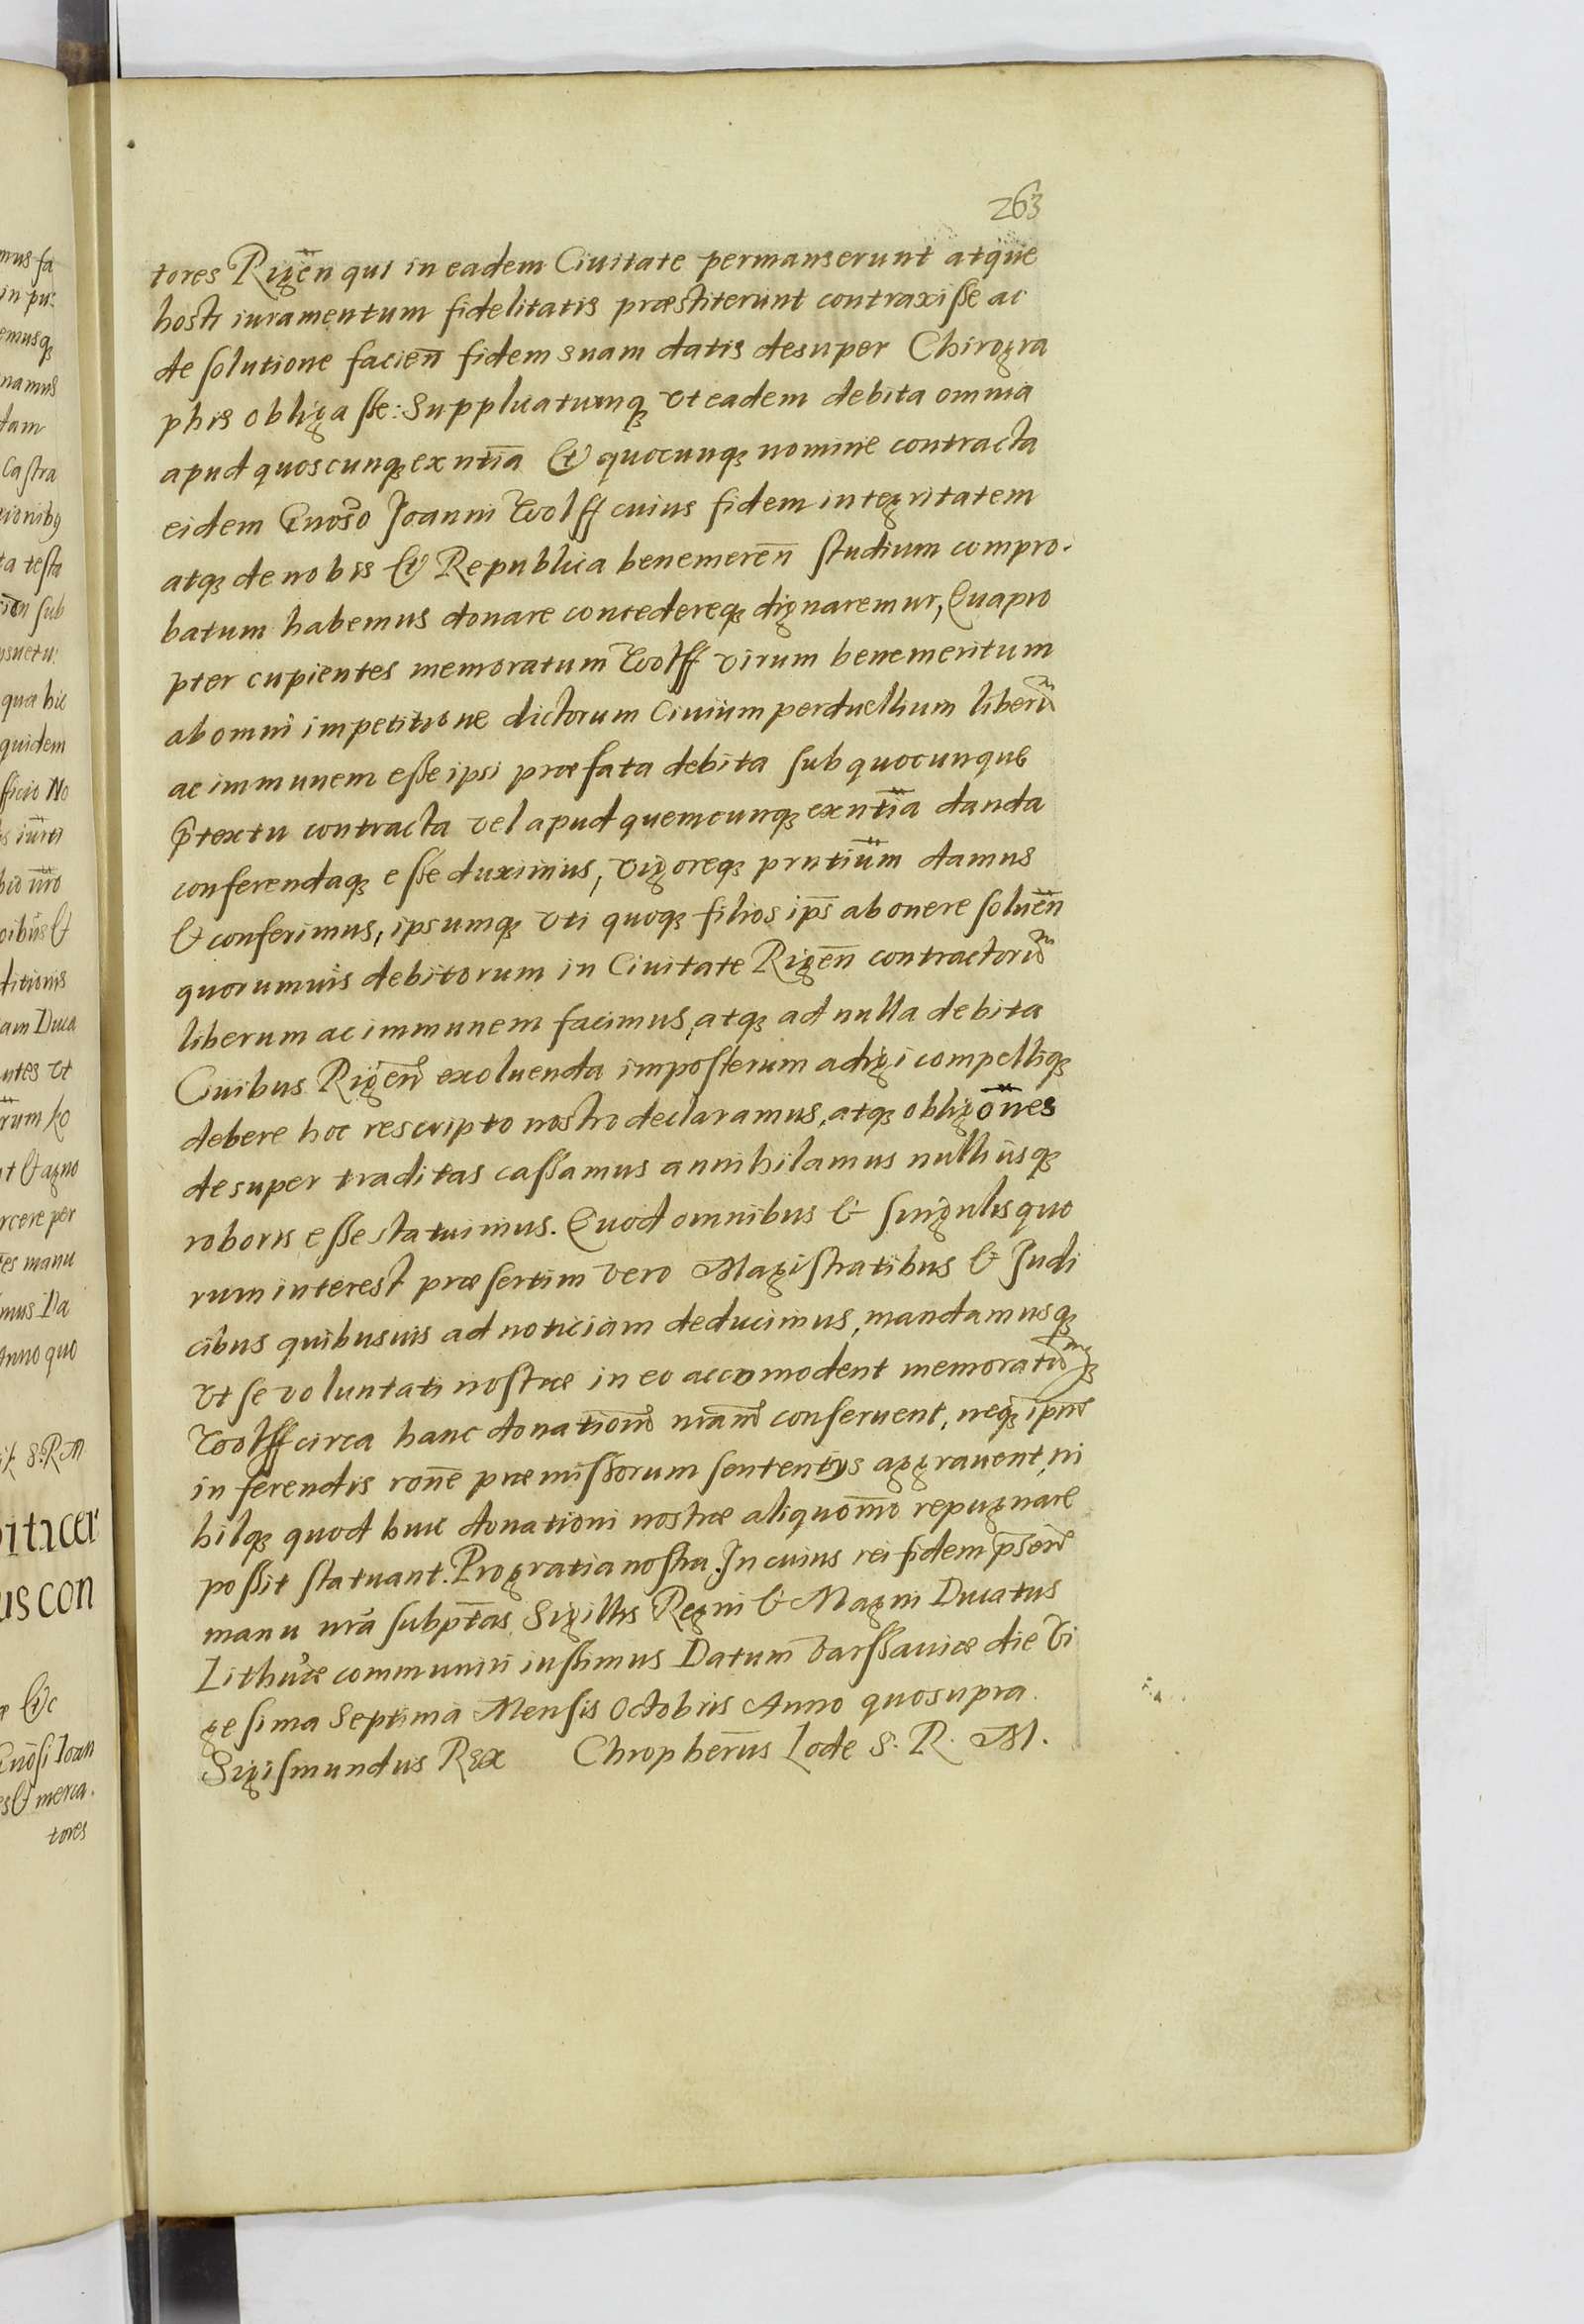 263
tores Rigen̄ qui in eadem Ciuitate permanserunt atque
hosti iuramentum fidelitatis præstiterunt contraxisse ac
de solutione facien̄ fidem suam datis desuper Chirogra
phis obligasse: Supplicatumq3 vt eadem debita omnia
apud quoscunq3 exn̄tia Et quocunq3 nomine contracta
eidem Gn̄oso Joanni Wolff cuius fidem integritatem
atq3 de nobis Et Republica benemeren̄ studium compro-
batum habemus donare concedereq3 dignaremur, Quapro
pter cupientes memoratum Wolff virum benemeritum
ab omni impetitione dictorum Ciuium perduellium liberū
ac immunem esse ipsi præfata debita sub quocunque
p̄textu contracta vel apud quemcunq3 exn̄tia danda
conferendaq3 esse duximus, vigoreq3 prn̄tium damus
Et conferimus, ipsumq3 vti quoq3 filios ip̄s ab onere soluen̄
quorumuis debitorum in Ciuitate Rigen̄ contractorū
liberum ac immunem facimus, atq3 ad nulla debita
Ciuibus Rigen̄ exoluenda imposterum adigi compelliq3
debere hoc rescripto nostro declaramus, atq3 obligōnes
desuper traditas cassamus annihilamus nulliusq3
roboris esse statuimus. Quod omnibus & singulis quo
rum interest præsertim vero Magistratibus & Judi
cibus quibusuis ad noticiam deducimus, mandamusq3
vt se voluntati nostræ in eo accomodent memoratūq3
Wolff circa hanc donationē nr̄am conseruent, neq3 ipm̄
in ferendis rōne præmissorum sententijs aggrauent, ni
hilq3 quod huic donationi nostræ aliquōmo repugnare
possit statuant. Pro gratia nostra. In cuius rei fidem p̄sen̄
manu nr̄a subp̄tas Sigillis Regni & Magni Ducatus
Lithūæ communiri iussimus Datum Varssauiæ die Vi
gesima Septima Mensis Octobris Anno quo supra.
Sigismundus Rex Chropherūs Lode S. R. M.